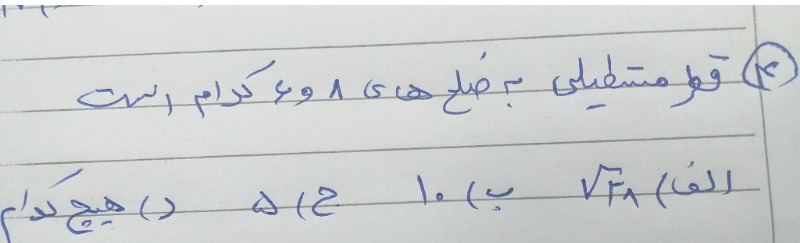 ۴) قطر مستطیلی به ضلع های ۸ و ۶ کدام است
الف) √۲۸ ب) ۱۰ ج) ۵ د) هیچ کدام